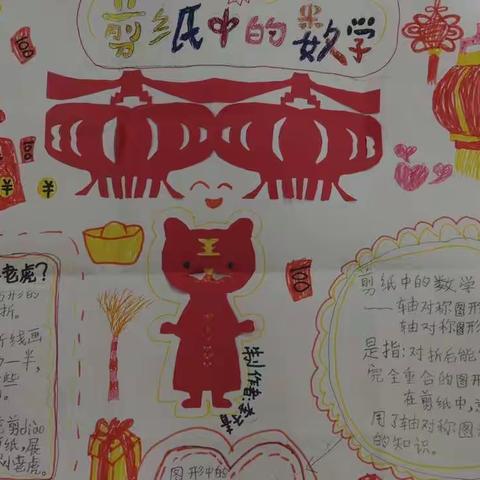 剪纸中的数学
100
100
100
¥
¥
王
老虎?
折。
折线画
一半,
些
剪diāo
纸,展
小老虎。
制作者:
图形中的
剪纸中的数学
——轴对称图形
轴对称图形
是指:对折后能
完全重合的图形
在剪纸中,
用了轴对称图
的知识。